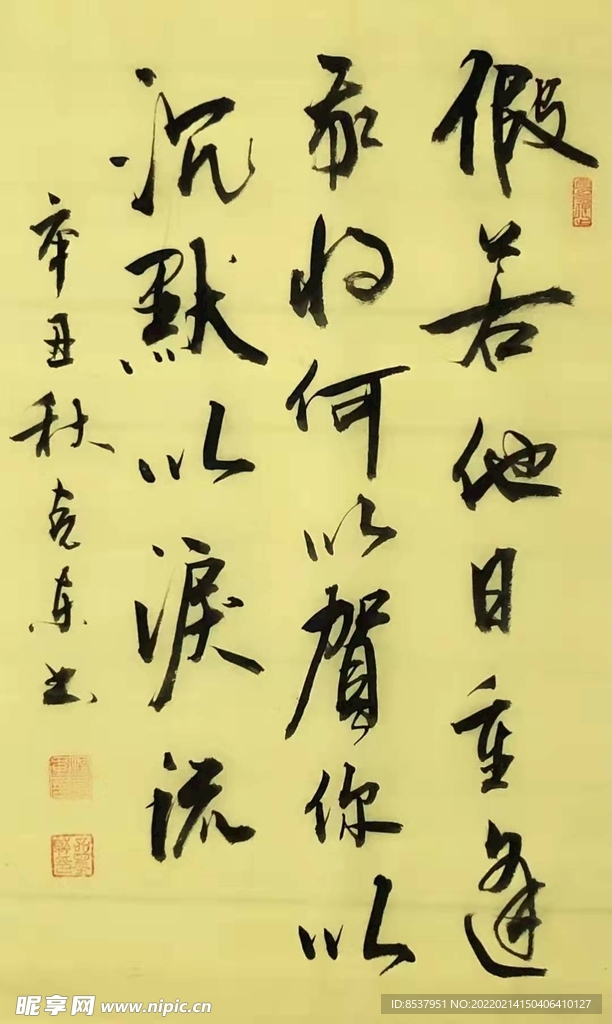 假若他日重逢
我将何以賀你以
沉默以淚流
辛丑秋克东书
昵享网 www.nipic.cn
ID:8537951 NO:20220214150406410127